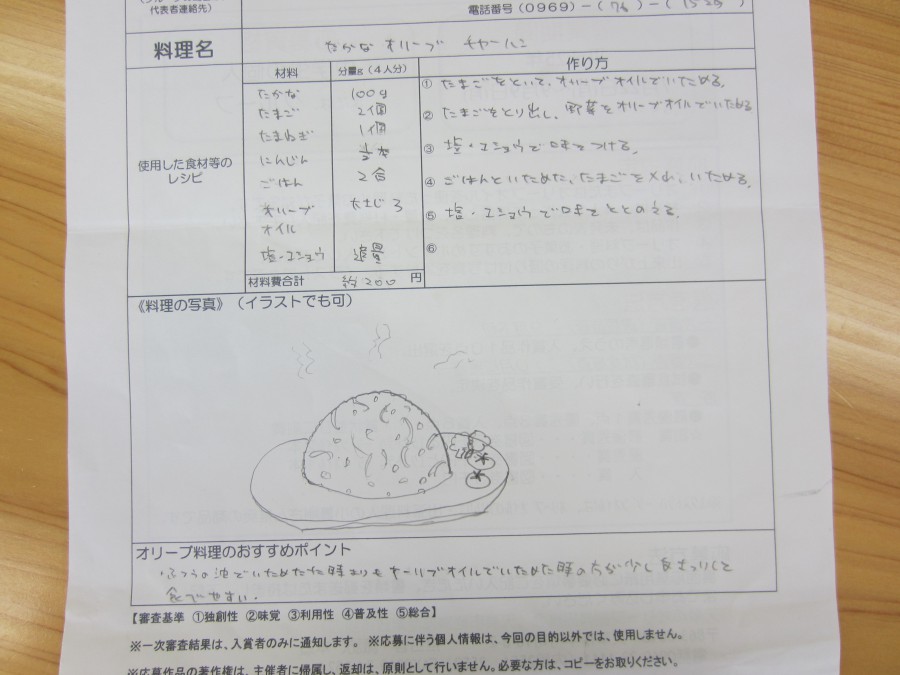 代表者連絡先)
電話番号(0969)-(76)-(
料理名
たかなオリーブ チャーハン
使用した食材等の
レシピ
材料
分量g(4人分)
たかな
100g
たまご
2個
たまねぎ
1個
にんじん
1/2本
ごはん
2合
オリーブ
オイル
大さじ3
塩・コショウ
適量
材料費合計
約200
円
作り方
① たまごをといて、オリーブオイルでいためる。
② たまごをとり出し、野菜をオリーブオイルでいためる
③ 塩・コショウで味をつける。
④ ごはんといためた、たまごを入れ、いためる。
⑤ 塩・コショウで味をととのえる。
⑥
《料理の写真》(イラストでも可)
オリーブ料理のおすすめポイント
ふつうの油でいためた時よりもオーリブオイルでいためた時の方が少しさっぱりして
食べやすい。
【審査基準 ①独創性 ②味覚 ③利用性 ④普及性 ⑤総合】
※一次審査結果は、入賞者のみに通知します。 ※応募に伴う個人情報は、今回の目的以外では、使用しません。
※応募作品の著作権は、主催者に帰属し、返却は、原則として行いません。必要な方は、コピーをお取りください。